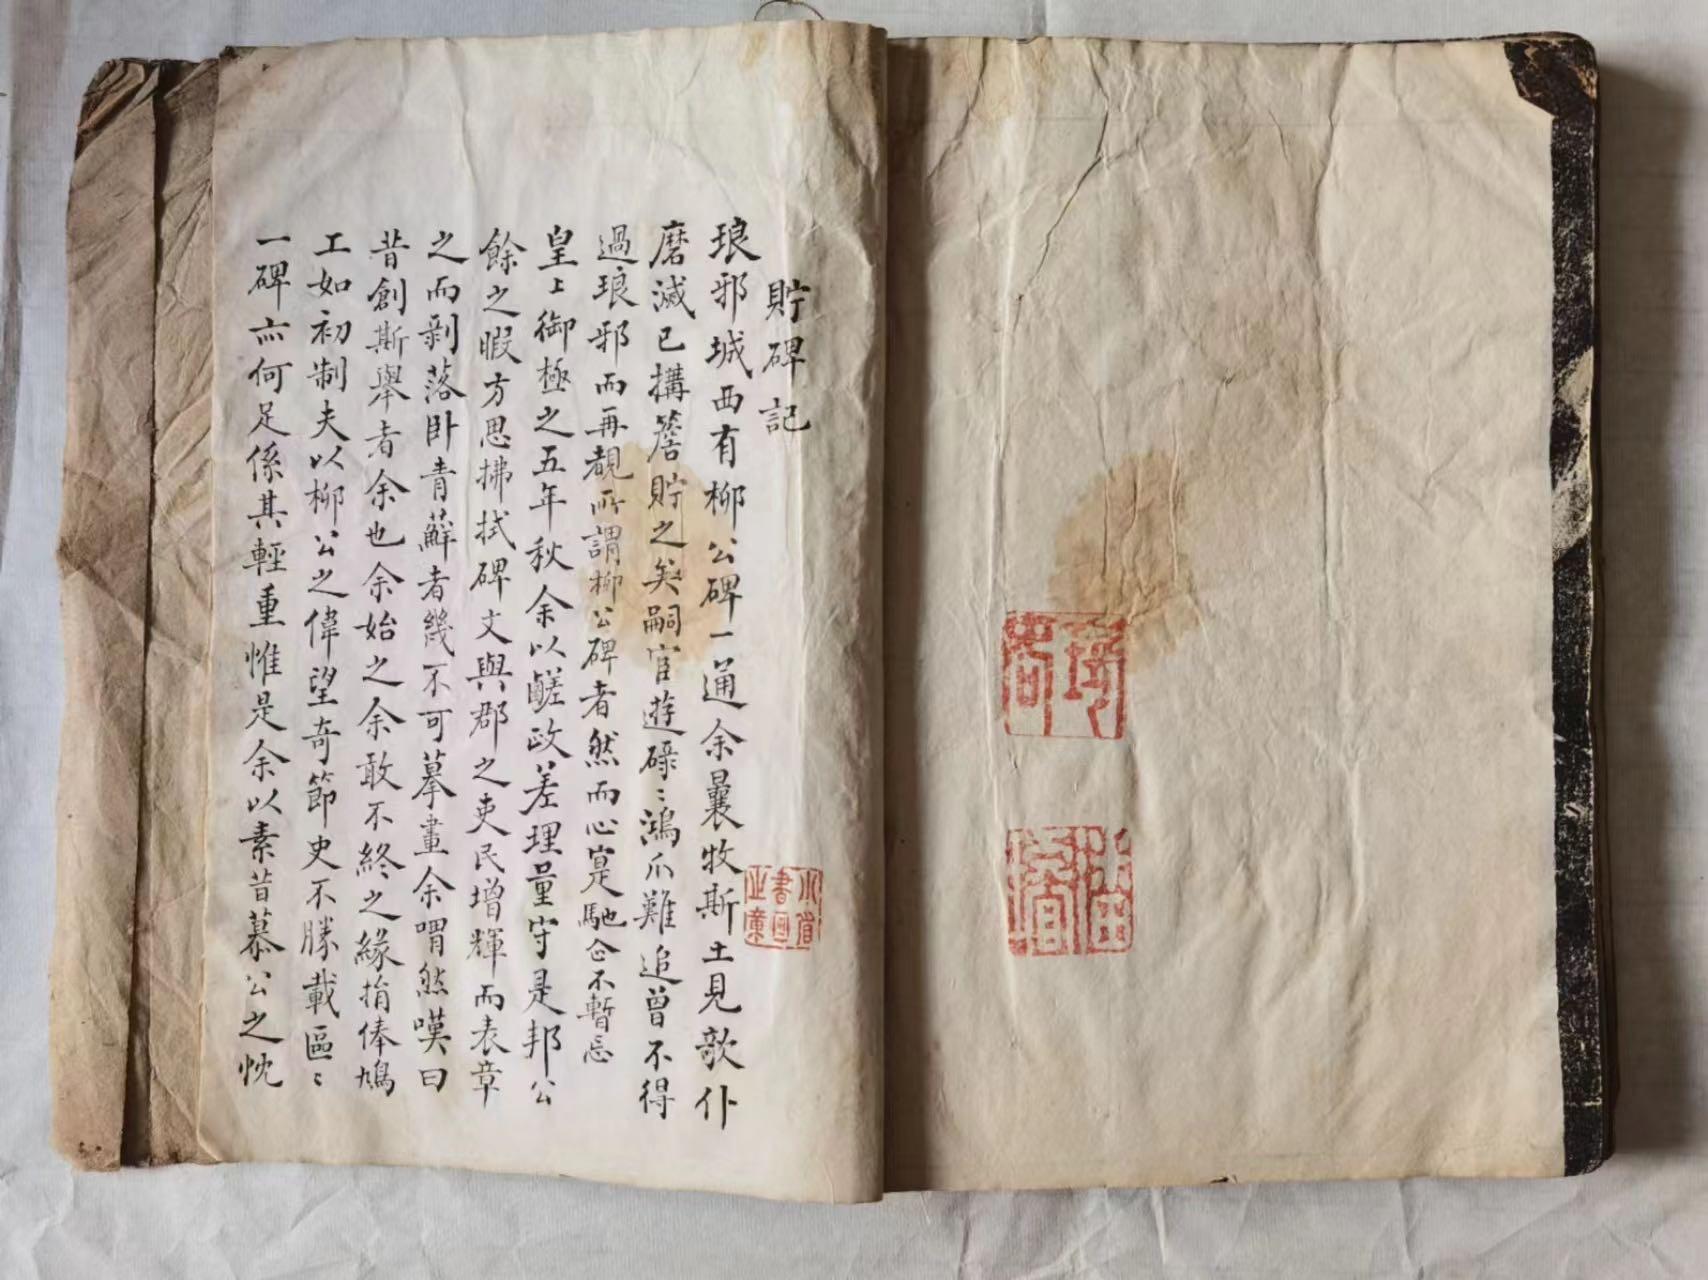 貯碑記
琅邪城西有柳公碑一通余曩牧斯土見欹仆
磨滅已搆簷貯之矣嗣宦遊碌〻鴻爪難追曾不得
過琅邪而再覩所謂柳公碑者然而心寔馳念不暫忘
皇上御極之五年秋余以鹺政差理量守是邦公
餘之暇方思拂拭碑文與郡之吏民增輝而表章
之而剥落卧青蘚者幾不可摹畫余喟然嘆曰
昔創斯舉者余也余始之余敢不終之緣捐俸鳩
工如初制夫以柳公之偉望奇節史不勝載區〻
一碑亦何足係其輕重惟是余以素昔慕公之忱